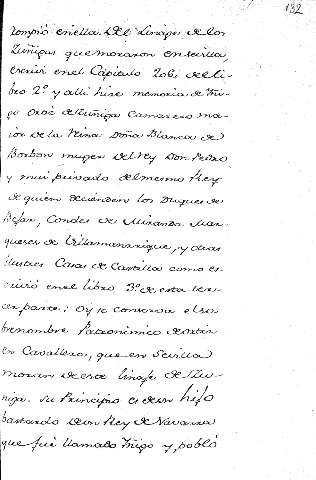 132
rompio en ella. Del Linage de los
Zuñigas que moraron en sevilla,
escrivi en el Capitulo 206, de el li-
bro 2º y alli hise memoria de Iñi-
go Ortiz de Zuñiga Camarero ma-
ior de la Reina Doña Blanca de
Borbon muger del Rey Don Pedro
y mui privado del mesmo Rey
de quien decienden los Duques de
Befar, Condes de Miranda Mar-
queses de Villamanrique, y otras
illustres Casas de Castilla como es-
crivió en el libro 3º de esta ter-
cer parte: Oy se conserva el so-
brenombre Patronimico de Ortiz
en Cavalleros, que en Sevilla
moran de este linage de Zu-
ñiga. su Principio es de un hijo
bastardo de un Rey de Navarra
que fue llamado Iñigo y, pobló